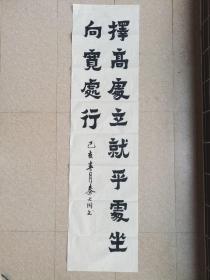 擇高處立就平處坐
向寬處行
己亥